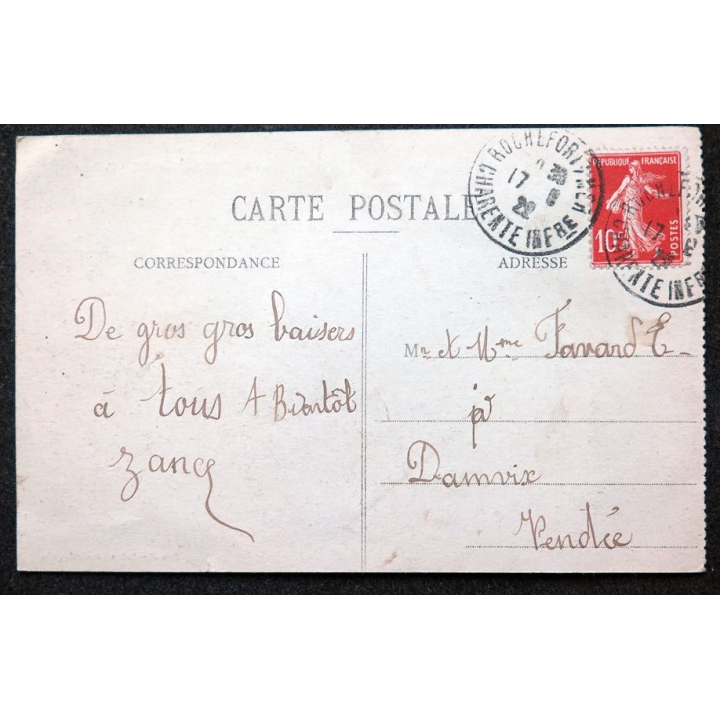 CARTE POSTALE
CORRESPONDANCE
De gros gros baisers
à tous A Bientôt
ADRESSE
Mr et Mme Favard E
Damvix
Vendée
ROCHEFORT S MER
17
22
CHARENTE INFRE
REPUBLIQUE FRANÇAISE
10c
POSTES
17
CHARENTE INFRE